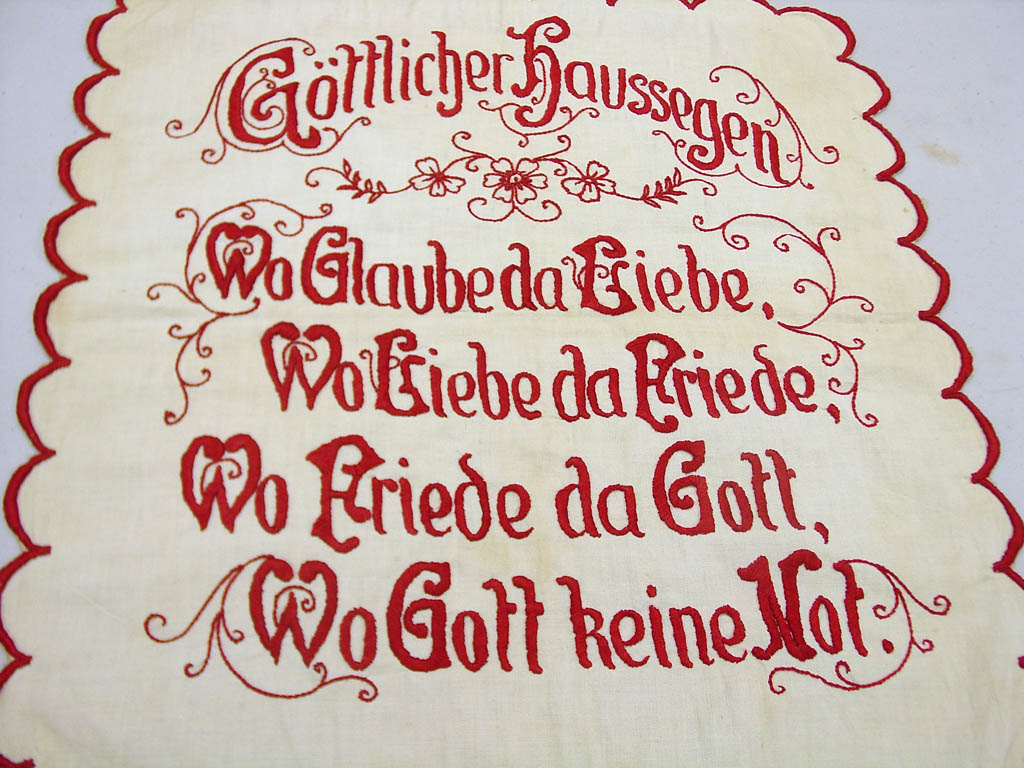 Göttlicher Haussegen
Wo Glaube da Liebe,
Wo Liebe da Friede,
Wo Friede da Gott,
Wo Gott keine Not.